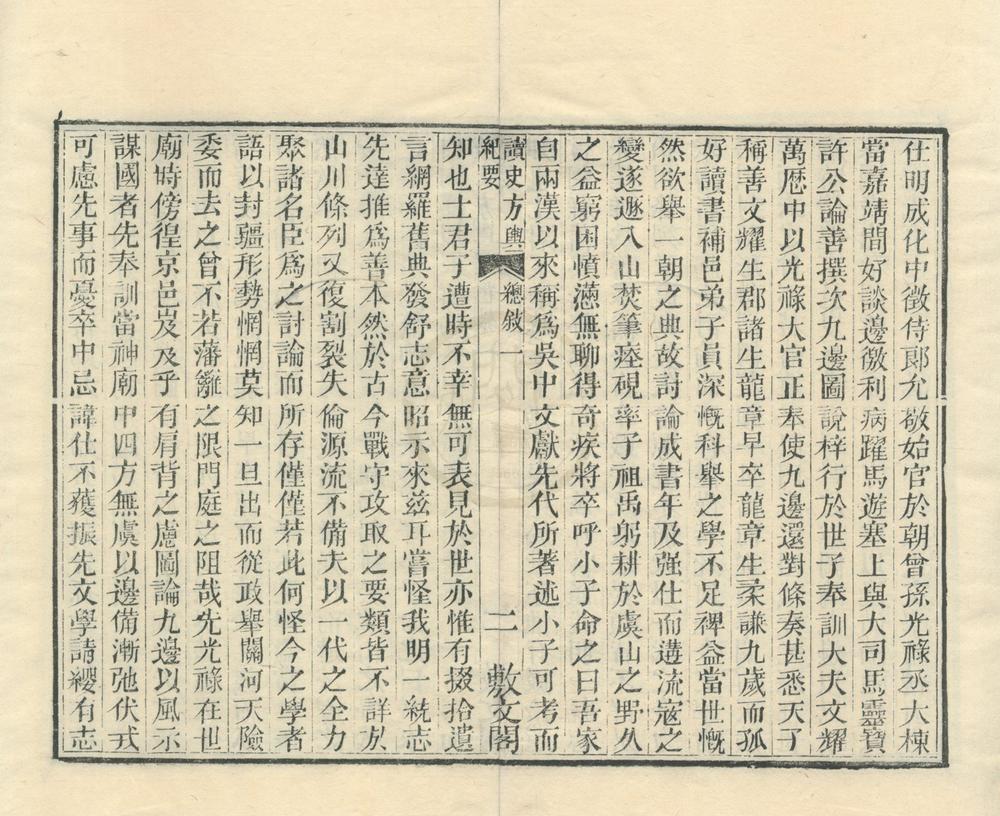 仕明成化中徵侍郎允敬始官於朝曾孫光祿丞大棟
當嘉靖間好談邊徼利病躍馬遊塞上與大司馬靈寶
許公論善撰次九邊圖說梓行於世子奉訓大夫文耀
萬厯中以光祿大官正奉使九邊還對條奏甚悉天子
稱善文耀生郡諸生龍章早卒龍章生柔謙九歲而孤
好讀書補邑弟子員深慨科舉之學不足裨益當世慨
然欲舉一朝之典故討論成書年及强仕而遘流寇之
變遂遯入山焚筆瘞硯率子祖禹躬耕於虞山之野久
之益窮困憤懣無聊得奇疾將卒呼小子命之曰吾家
自兩漢以來稱爲吳中文獻先代所著述小子可考而
讀史方輿紀要 總敘一 二 敷文閣
知也士君子遭時不幸無可表見於世亦惟有掇拾遺
言網羅舊典發舒志意昭示來兹耳嘗怪我明一統志
先達推爲善本然於古今戰守攻取之要類皆不詳於
山川條列又復割裂失倫源流不備夫以一代之全力
聚諸名臣爲之討論而所存僅僅若此何怪今之學者
語以封疆形勢惘惘莫知一旦出而從政舉關河天險
委而去之曾不若藩籬之限門庭之阻哉先光祿在世
廟時傍徨京邑岌岌乎有肩背之慮圖論九邊以風示
謀國者先奉訓當神廟中四方無虞以邊備漸弛伏戎
可慮先事而憂卒中忌諱仕不獲振先文學請纓有志